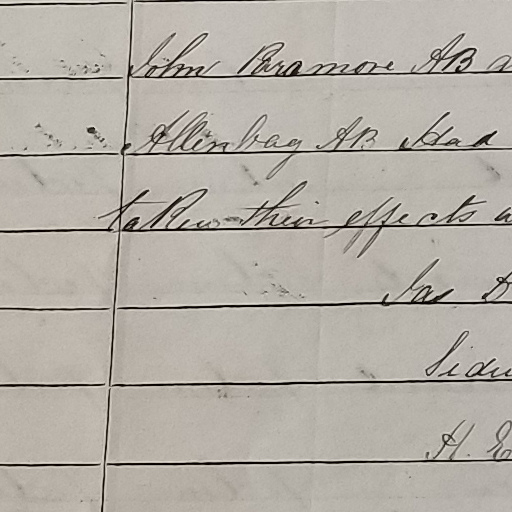 John Paramore AB
Allenbag AB Had
taken their effects
Jas
H. E